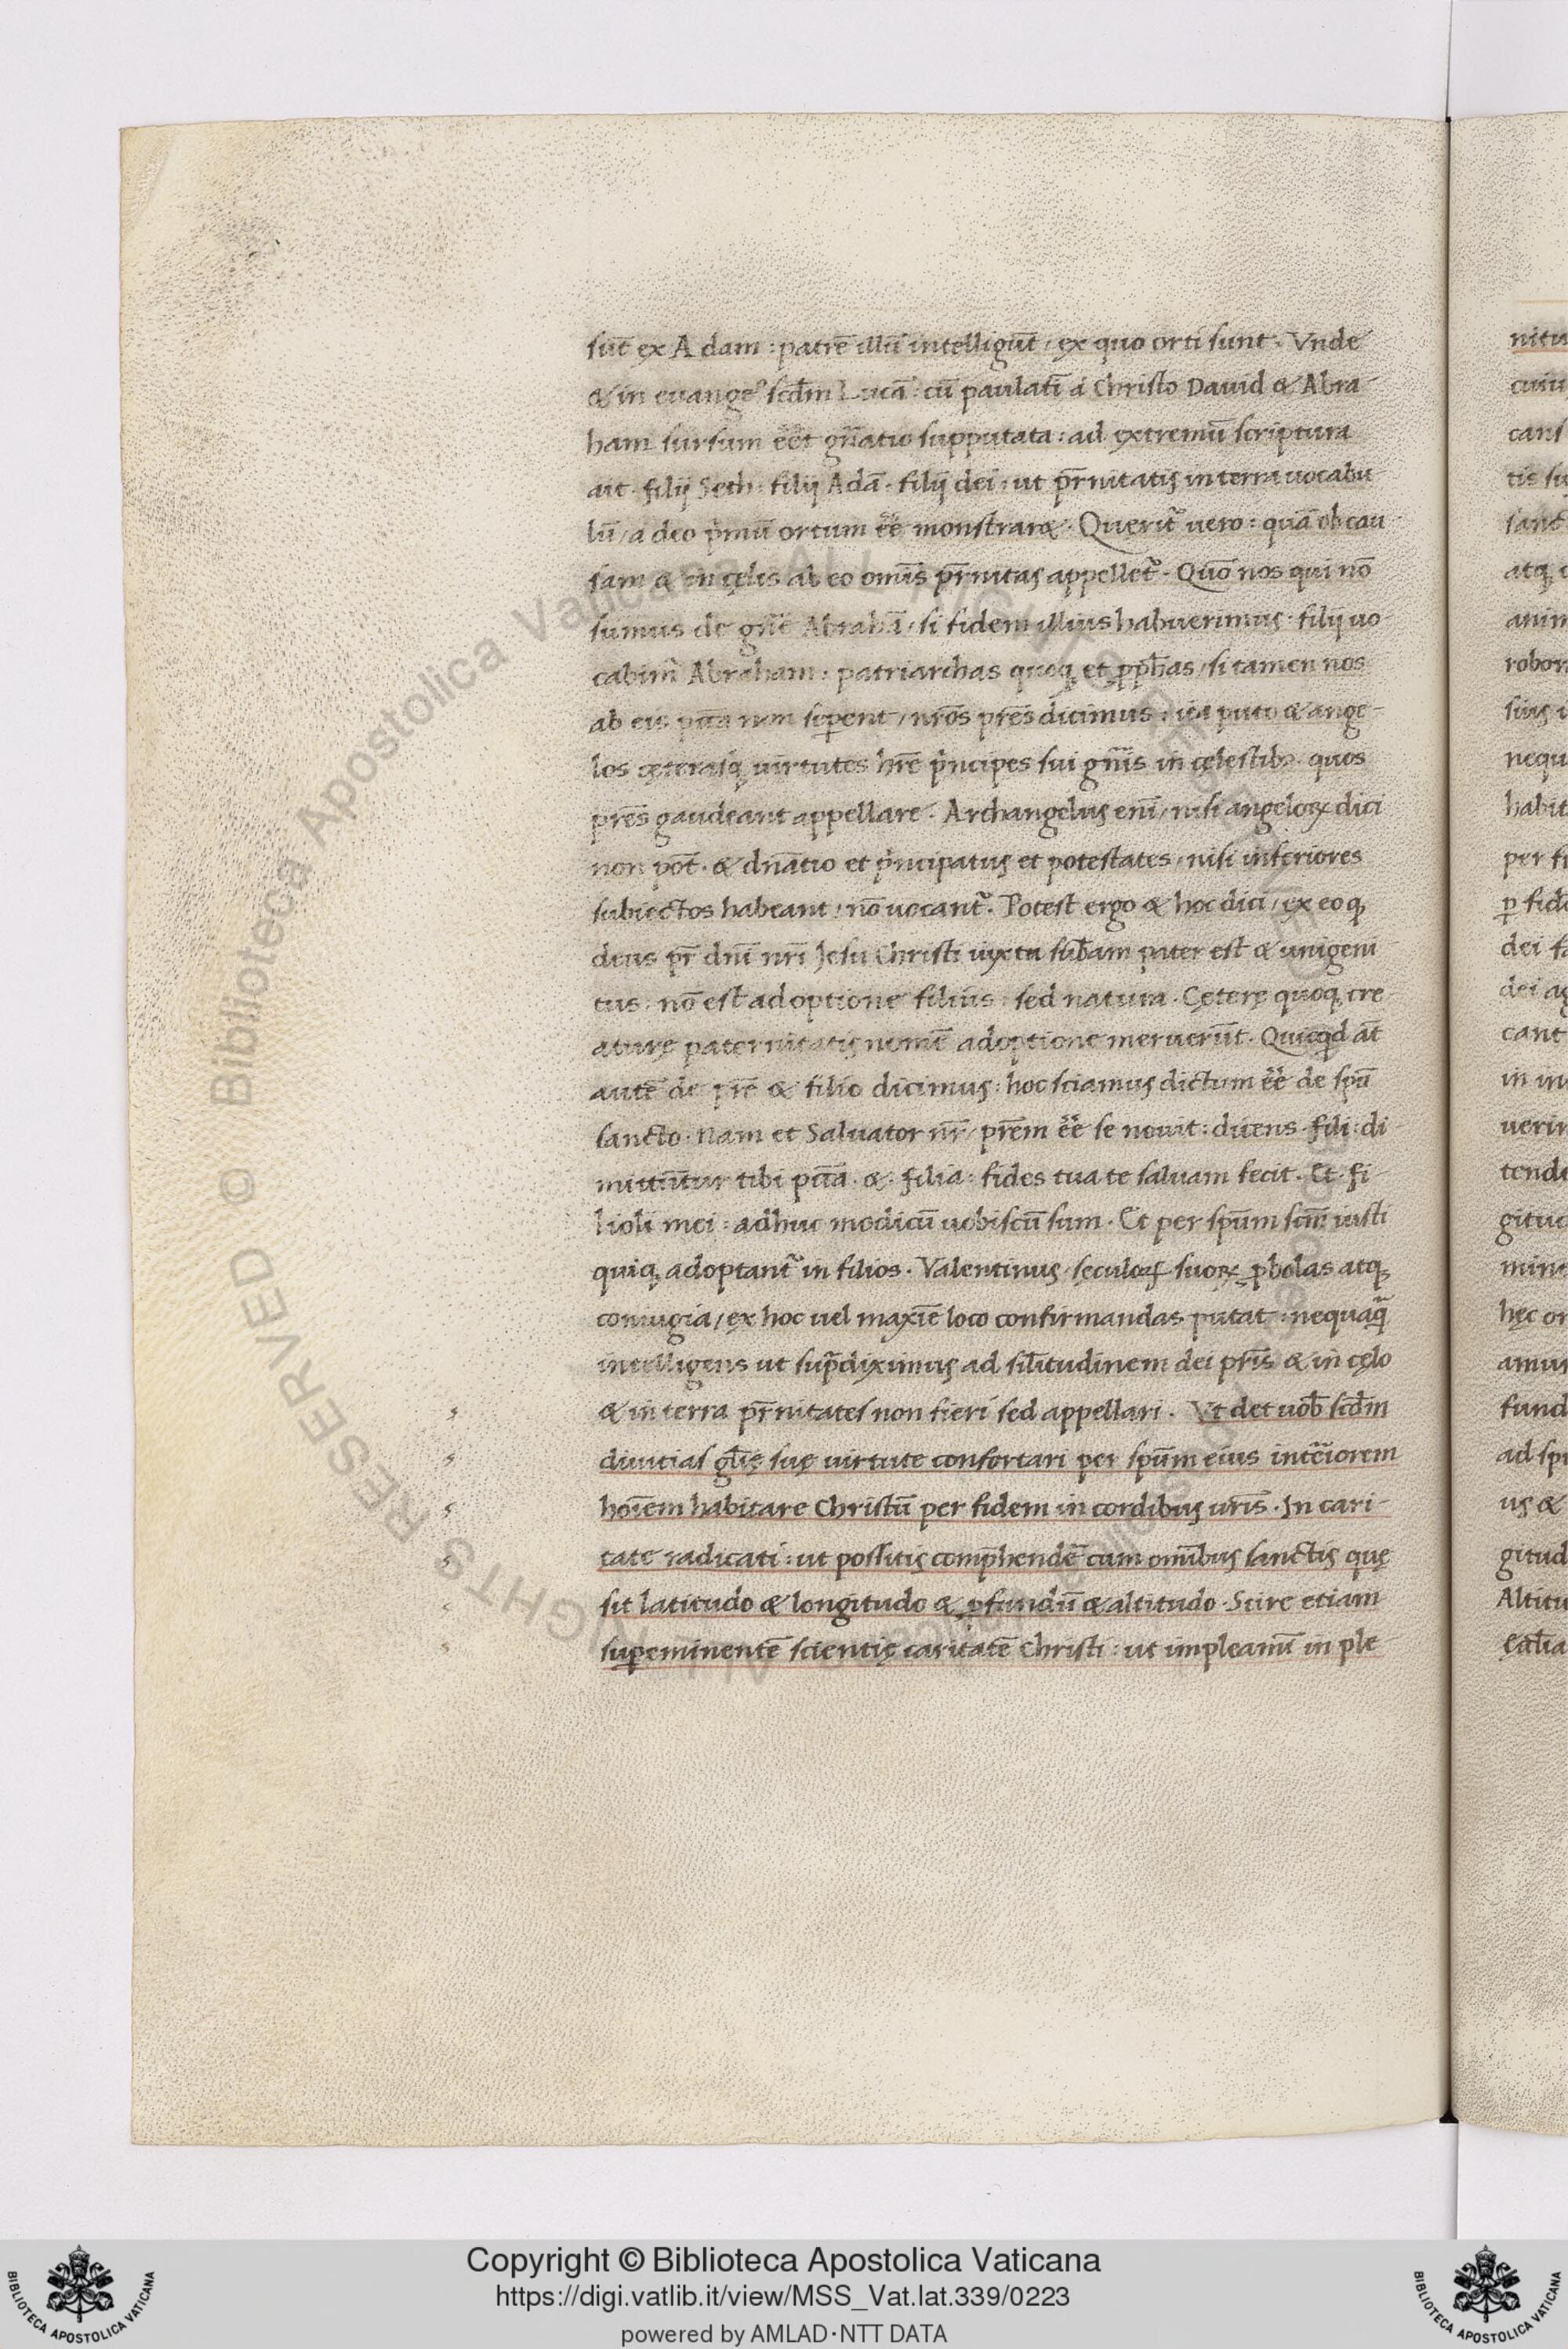 sūt ex Adam : patrē illū intelligūt / ex quo orti sunt. Vnde
& in euangeꝰ scd̄m Lucā : cū paulatī a Christo Dauid & Abra-
ham sursum eēt gn̄atio supputata : ad extremū scriptura
ait. filij Seth. filij Adā. filij dei : ut pr̄nitatis in terra uocabu-
lū / a deo pͥmū ortum eē̄ monstraret. Querit᷑ uero : quā ob cau-
sam & in cęlis ab eo omīs pr̄nitas appellet᷑. Quō nos qui nō
sumus de gn̄e Abrahā / si fidem illius habuerimus : filij uo-
cabim᷑ Abraham : patriarchas quoq; et ꝓph̄as / si tamen nos
ab eis pc̄ta non seꝑent / nr̄os pr̄es dicimus : ita puto & ange-
los cęterasq; uirtutes hr̄e pͥncipes sui gn̄is in cęlestibꝫ. quos
pr̄es gaudeant appellare. Archangelus enī / nisi angeloꝝ dici
non pōt. & dn̄atio et pͥncipatus et potestates / nisi inferiores
subiectos habeant / nō uocant᷑. Potest ergo & hoc dici / ex eo q;
deus pr̄ dn̄i nr̄i Jesu Christi iuxta sub̄am pater est & unigeni
tus : nō est adoptione filius : sed natura. Cęterę quoq; cre-
aturę paternitatis nomē adoptione meruerūt. Quicqd āt
autē de pr̄e & filio dicimus : hoc sciamus dictum eē̄ de spū
sancto. Nam et Saluator nr̄ / pr̄em eē̄ se nouit : dicens. fili : di-
mittūtur tibi pc̄ta. &. filia : fides tua te saluam fecit. Et. fi-
lioli mei : adhuc modicū uobiscū sum. Et per spūm scm̄ iusti
quiq; adoptant᷑ in filios. Valentinus / seculoꝝ suoꝝ ꝓbolas atq;
coniugia / ex hoc uel maxīe loco confirmandas putat : nequaq̄
intelligens ut supᷓdiximus ad sil̄itudinem dei pr̄is & in cęlo
& in terra pr̄nitates non fieri sed appellari. Vt det uob̄ scd̄m
diuitias gl̄ię suę uirtute confortari per spūm eius int̄eiorem
hoīem habitare Christū per fidem in cordibus ur̄is. In cari-
tate radicati : ut possitis comp̄hendē cum omībus sanctis quę
sit latitudo & longitudo & ꝓfundū & altitudo. Scire etiam
suꝑeminentē scientię caritatē Christi : ut impleamī in ple-
Copyright © Biblioteca Apostolica Vaticana
https://digi.vatlib.it/view/MSS_Vat.lat.339/0223
powered by AMLAD·NTT DATA